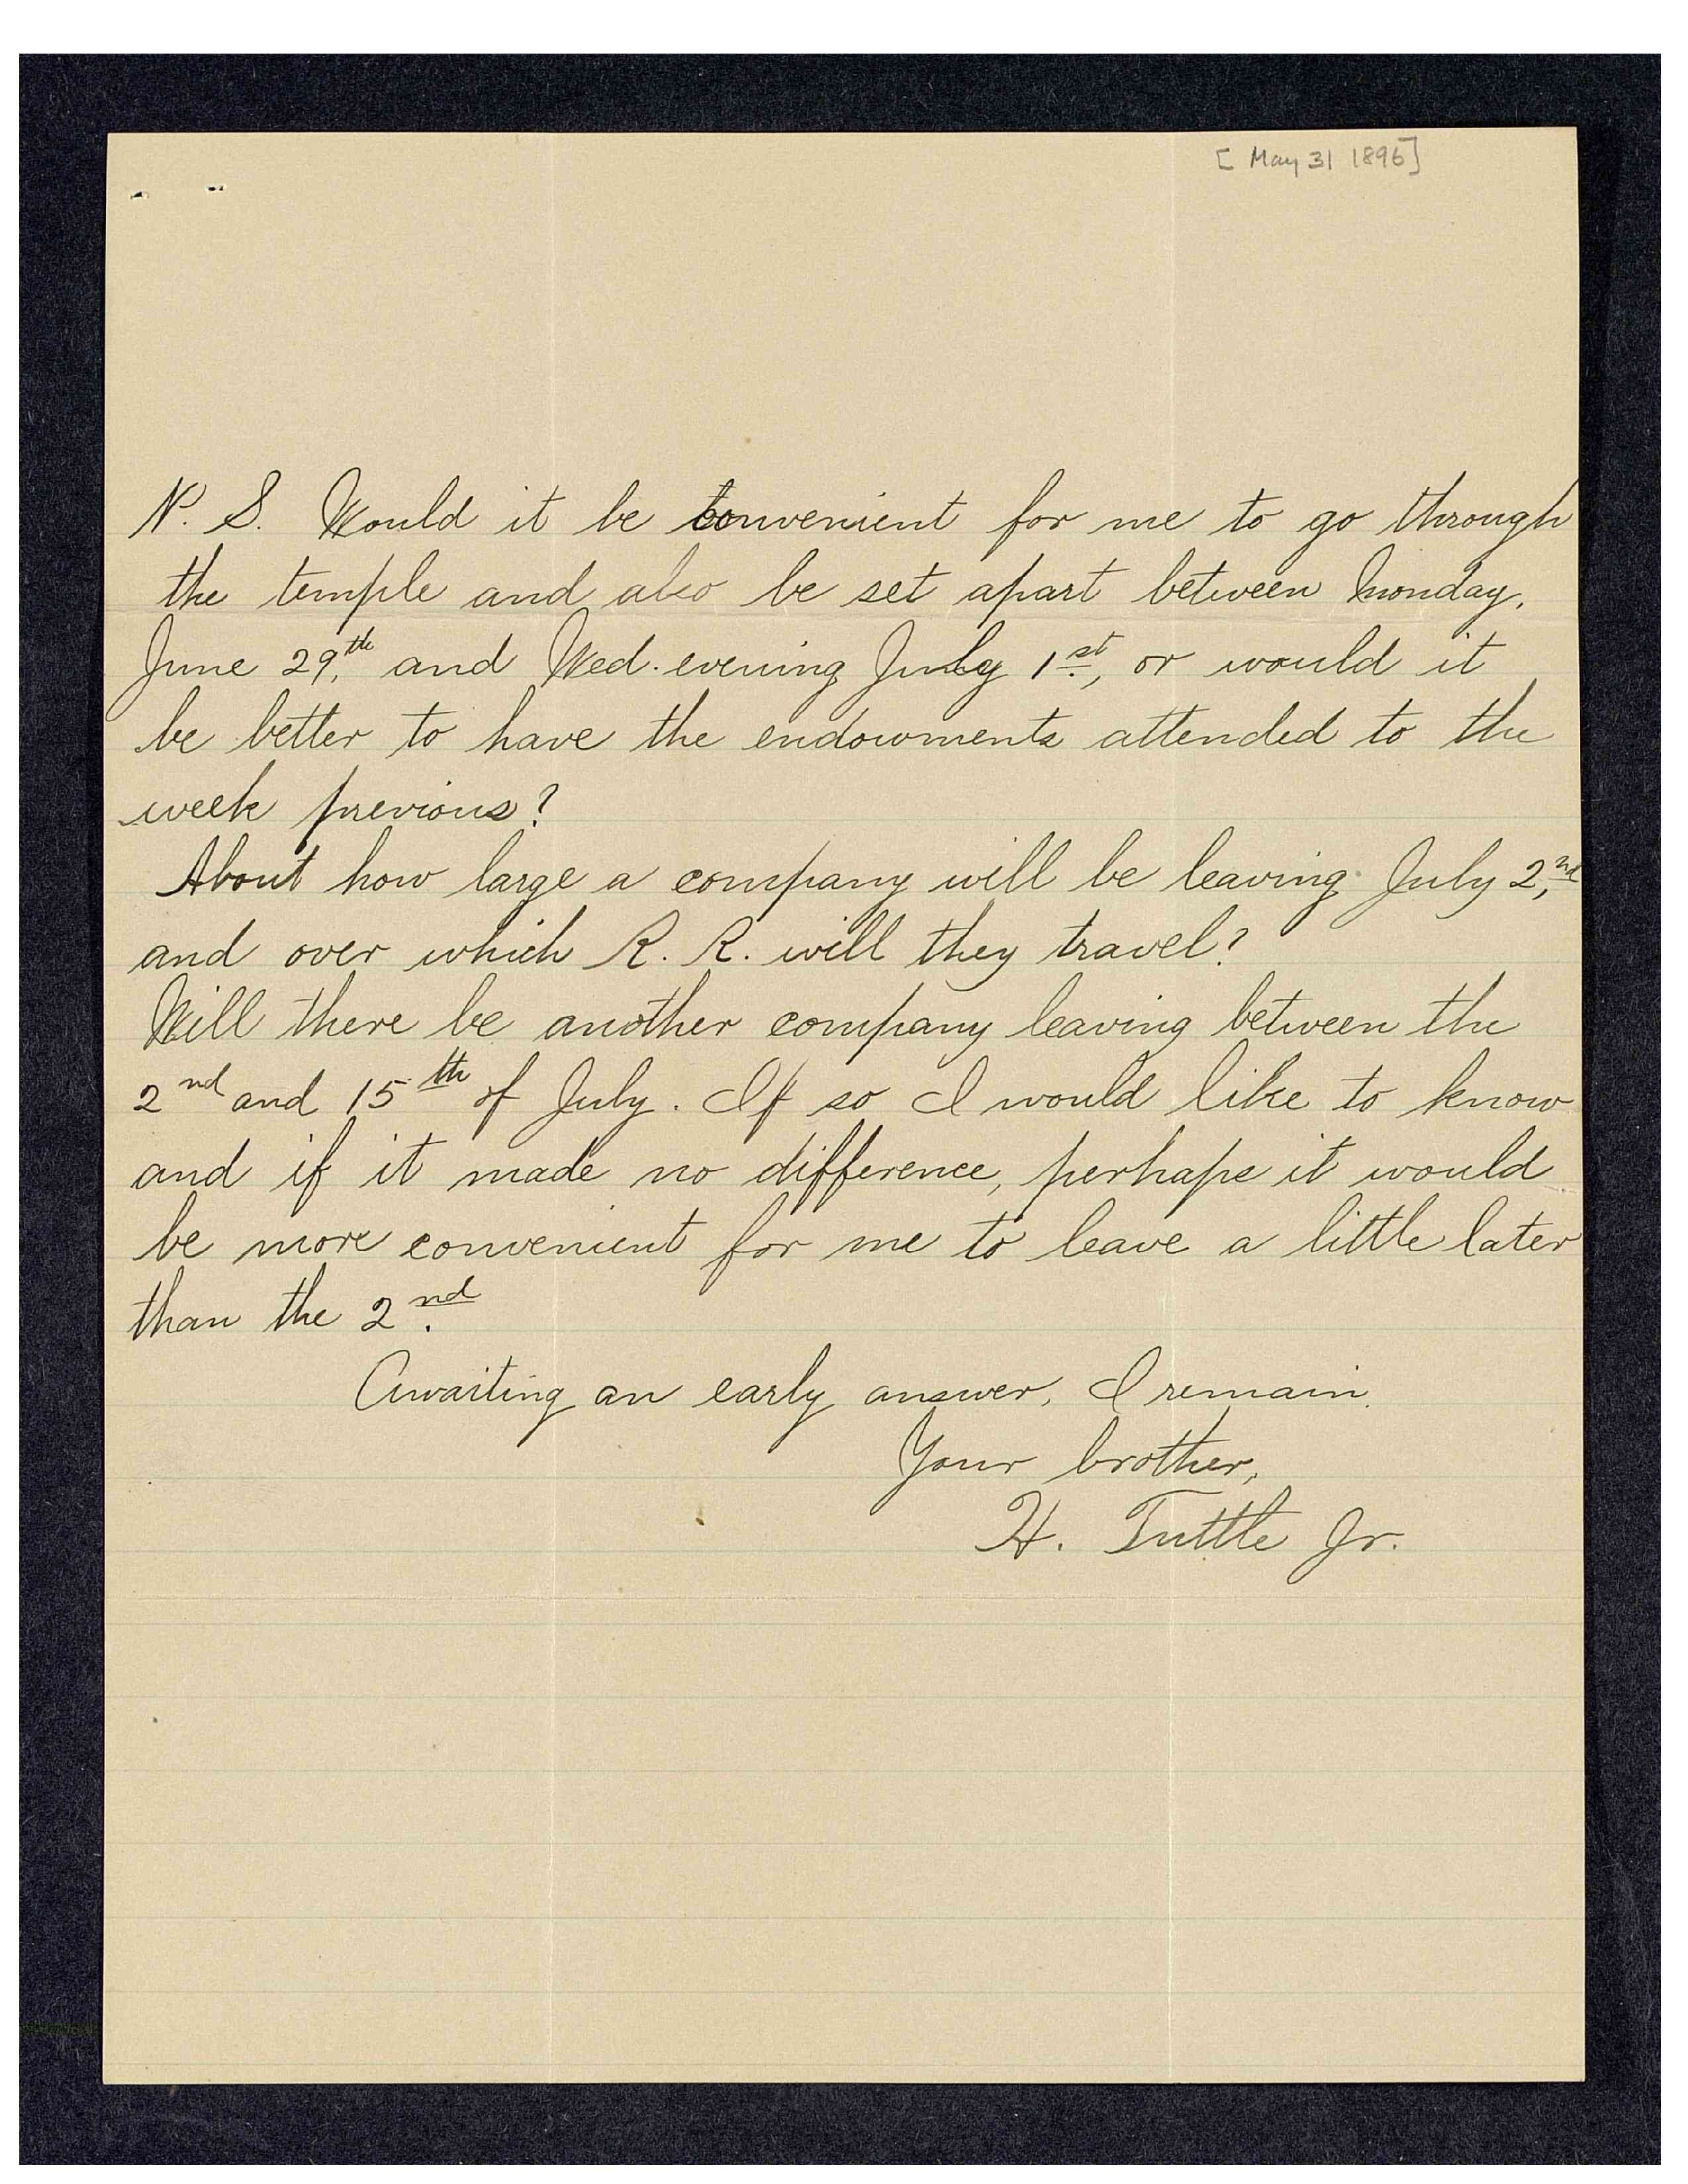 [May 31 1896]
N. S. Would it be convenient for me to go through
the temple and also be set apart between Monday,
June 29,th and Wed. evening July 1st, or would it
be better to have the endowments attended to the
week previous?
About how large a company will be leaving July 2,nd
and over which R. R. will they travel?
Will there be another company leaving between the
2nd and 15th of July. If so I would like to know
and if it made no difference, perhaps it would
be more convenient for me to leave a little later
than the 2nd.
Awaiting an early answer, I remain.
Your brother,
H. Tuttle Jr.